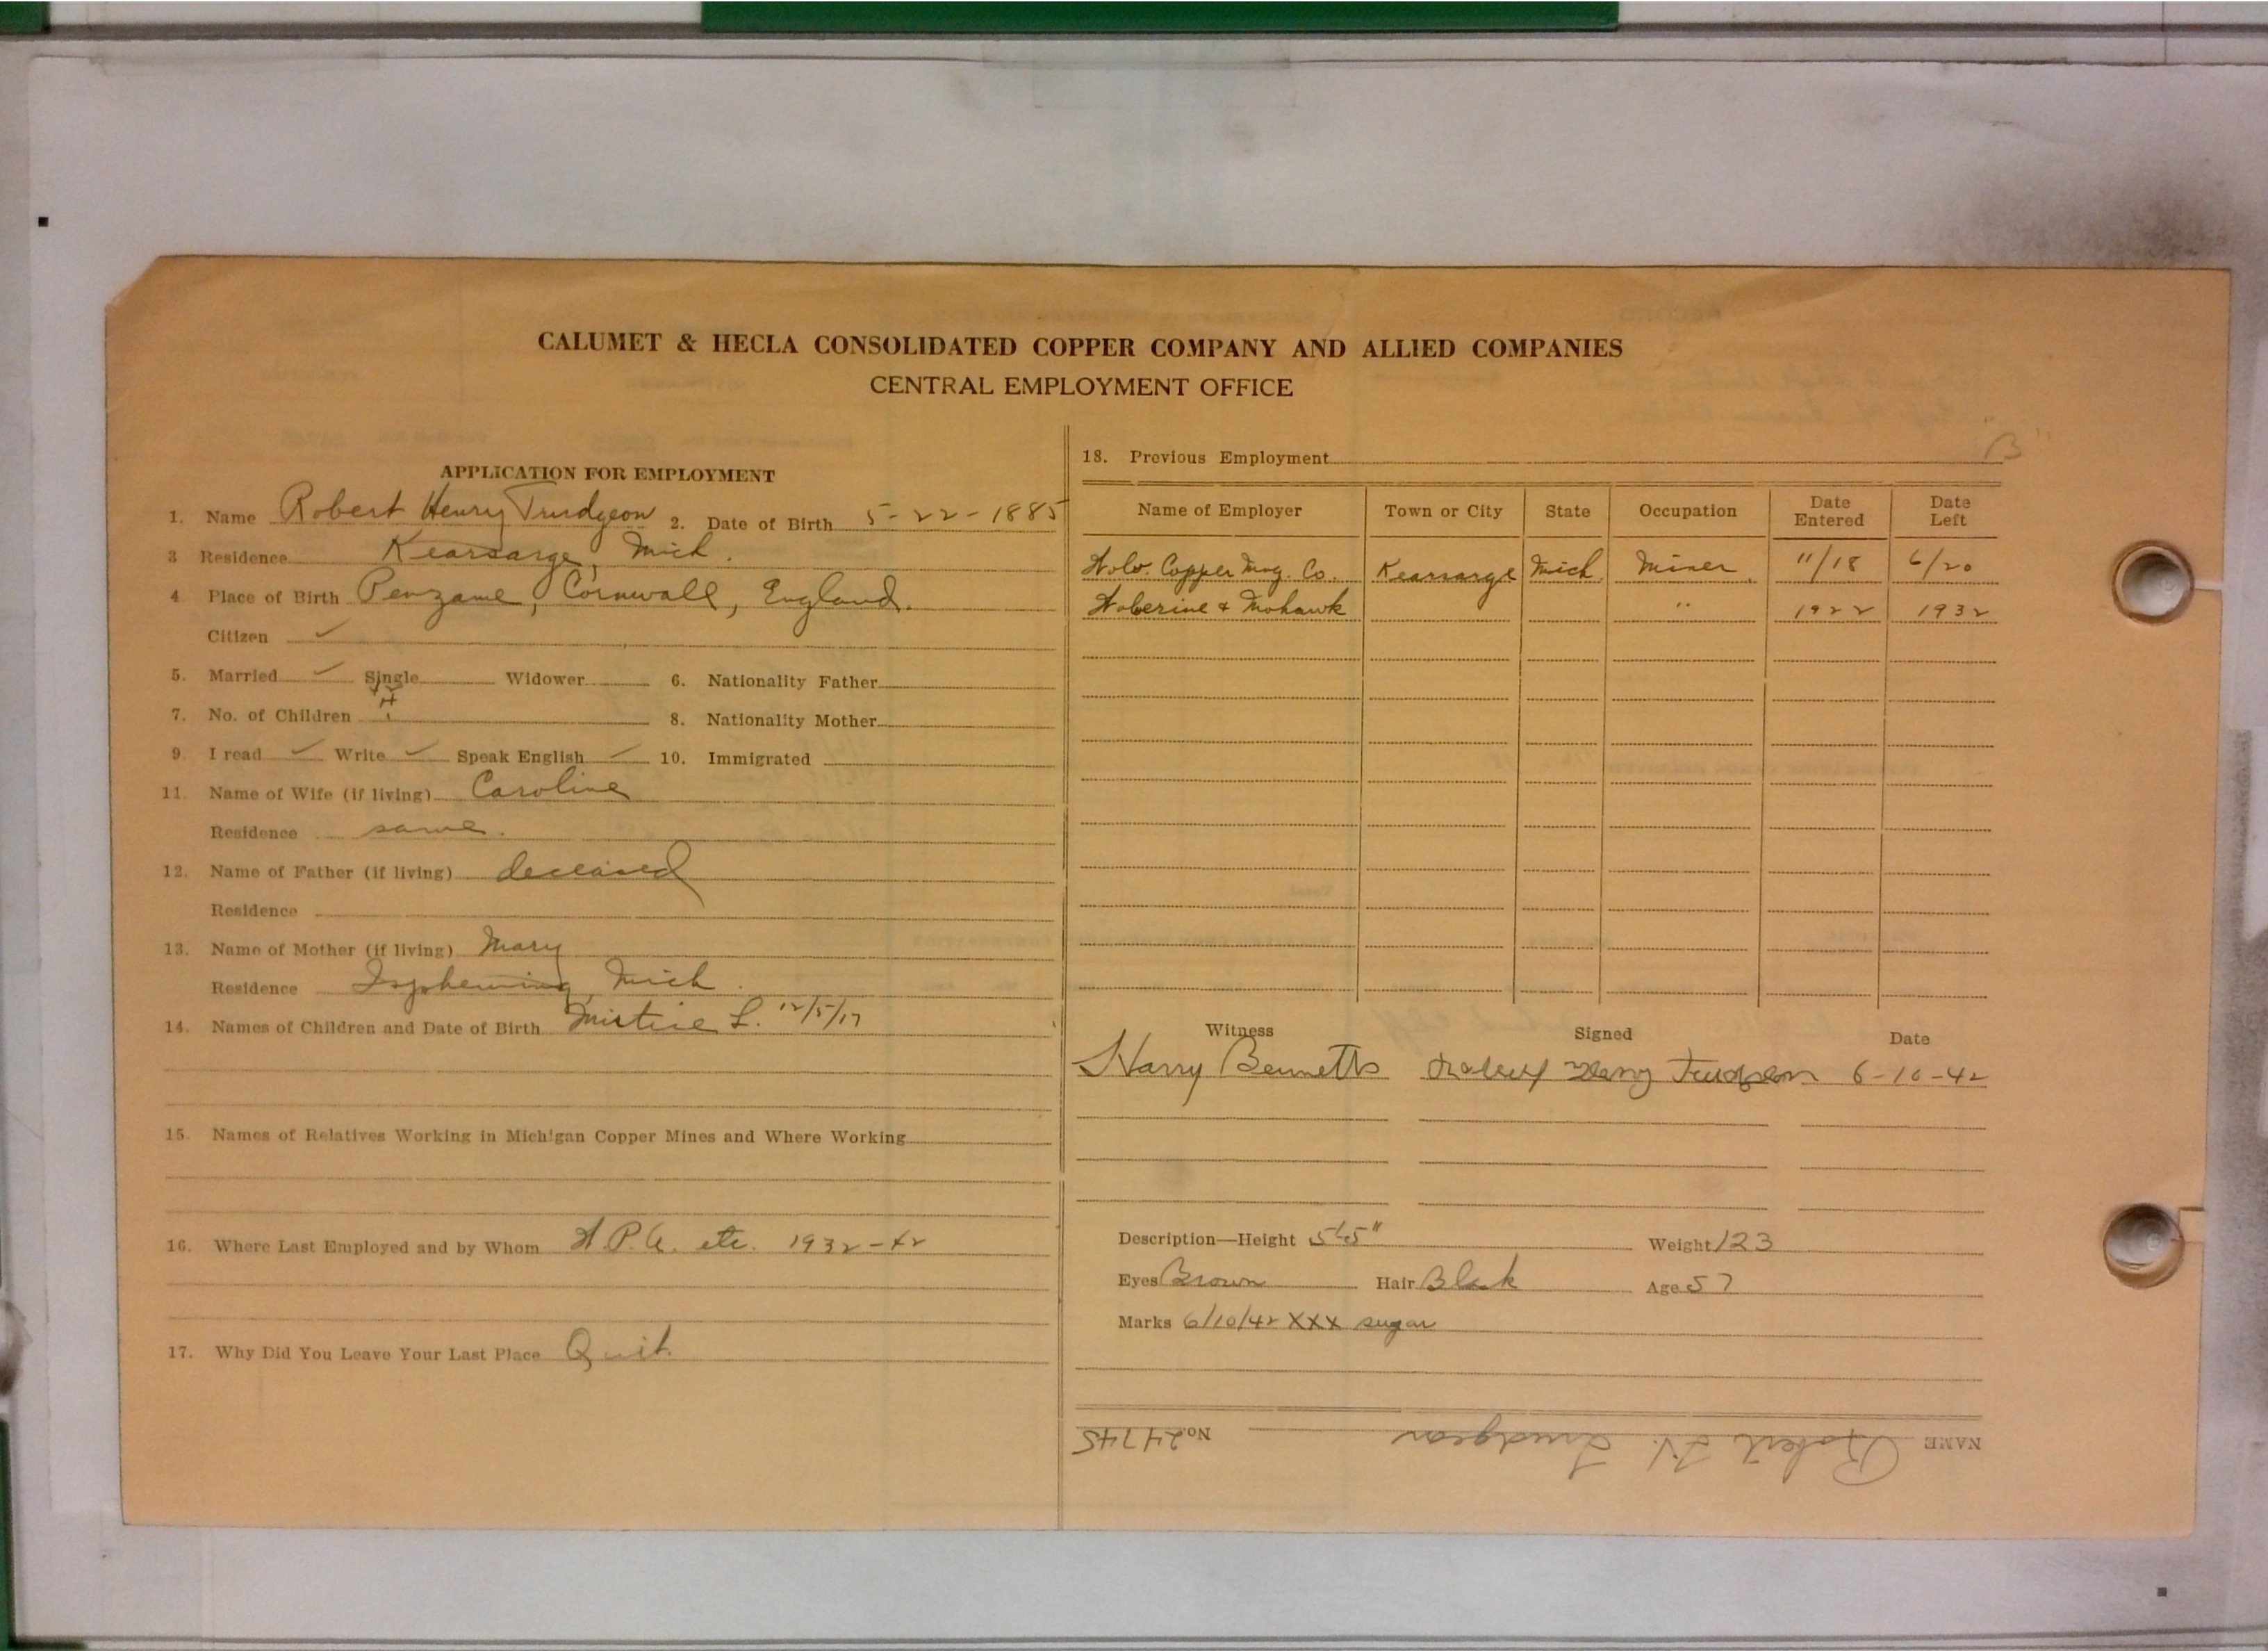 CALUMET & HECLA CONSOLIDATED COPPER COMPANY AND ALLIED COMPANIES
CENTRAL EMPLOYMENT OFFICE
APPLICATION FOR EMPLOYMENT
1. Name Robert Henry Trudgeon 2. Date of Birth 5-22-1885
3 Residence Kearsarge, Mich.
4 Place of Birth Penzame, Cornwall, England.
Citizen ✓
5. Married ✓ Single Widower 6. Nationality Father
7. No. of Children 8. Nationality Mother
9. I read ✓ Write ✓ Speak English ✓ 10. Immigrated
11. Name of Wife (if living) Caroline
Residence same.
12. Name of Father (if living) deceased
Residence
13. Name of Mother (if living) Mary
Residence Mich.
14. Names of Children and Date of Birth L. 12/5/17
15. Names of Relatives Working in Michigan Copper Mines and Where Working
16. Where Last Employed and by Whom W.P.A. etc. 1932-42
17. Why Did You Leave Your Last Place Quit.
18. Previous Employment B"
Name of Employer Town or City State Occupation Date Entered Date Left
Wolv. Copper Mng. Co. Kearsarge Mich. Miner. 11/18 6/20
Wolverine & Mohawk " 1922 1932
Witness Signed Date
Harry Bennetts Robert Henry Trudgeon 6-10-42
Description—Height 5'5" Weight 123
Eyes Brown Hair Black Age 57
Marks 6/10/42 XXX sugar
NAME Robert H. Trudgeon No. 24745